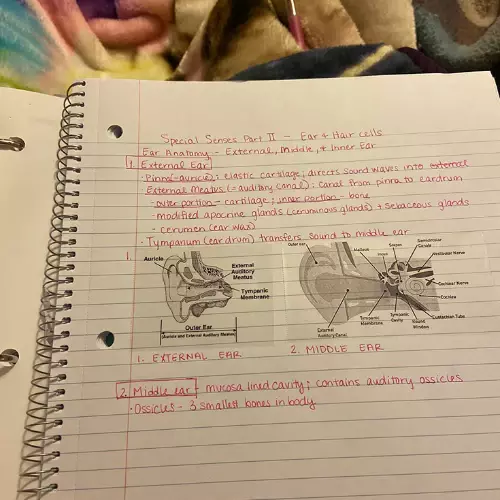 Special Senses Part II - Ear & Hair cells
Ear Anatomy - External, Middle, + Inner Ear
1. External Ear
· Pinna (=auricle): elastic cartilage; directs sound waves into external
External Meatus (=auditory canal): canal from pinna to eardrum
- outer portion - cartilage; inner portion - bone
- modified apocrine glands (ceruminous glands) + sebaceous glands
- cerumen (ear wax)
· Tympanum (eardrum) transfers sound to middle ear
1.
Auricle
External Auditory Meatus
Tympanic Membrane
Outer Ear
(Auricle and External Auditory Meatus)
Outer ear
Malleus
Incus
Stapes
Semicircular Canals
Vestibular Nerve
Cochlear Nerve
Cochlea
Eustachian Tube
Round Window
Tympanic Cavity
Tympanic Membrane
External Auditory Canal
1. EXTERNAL EAR
2. MIDDLE EAR
2. Middle ear: mucosa lined cavity; contains auditory ossicles
· Ossicles - 3 smallest bones in body